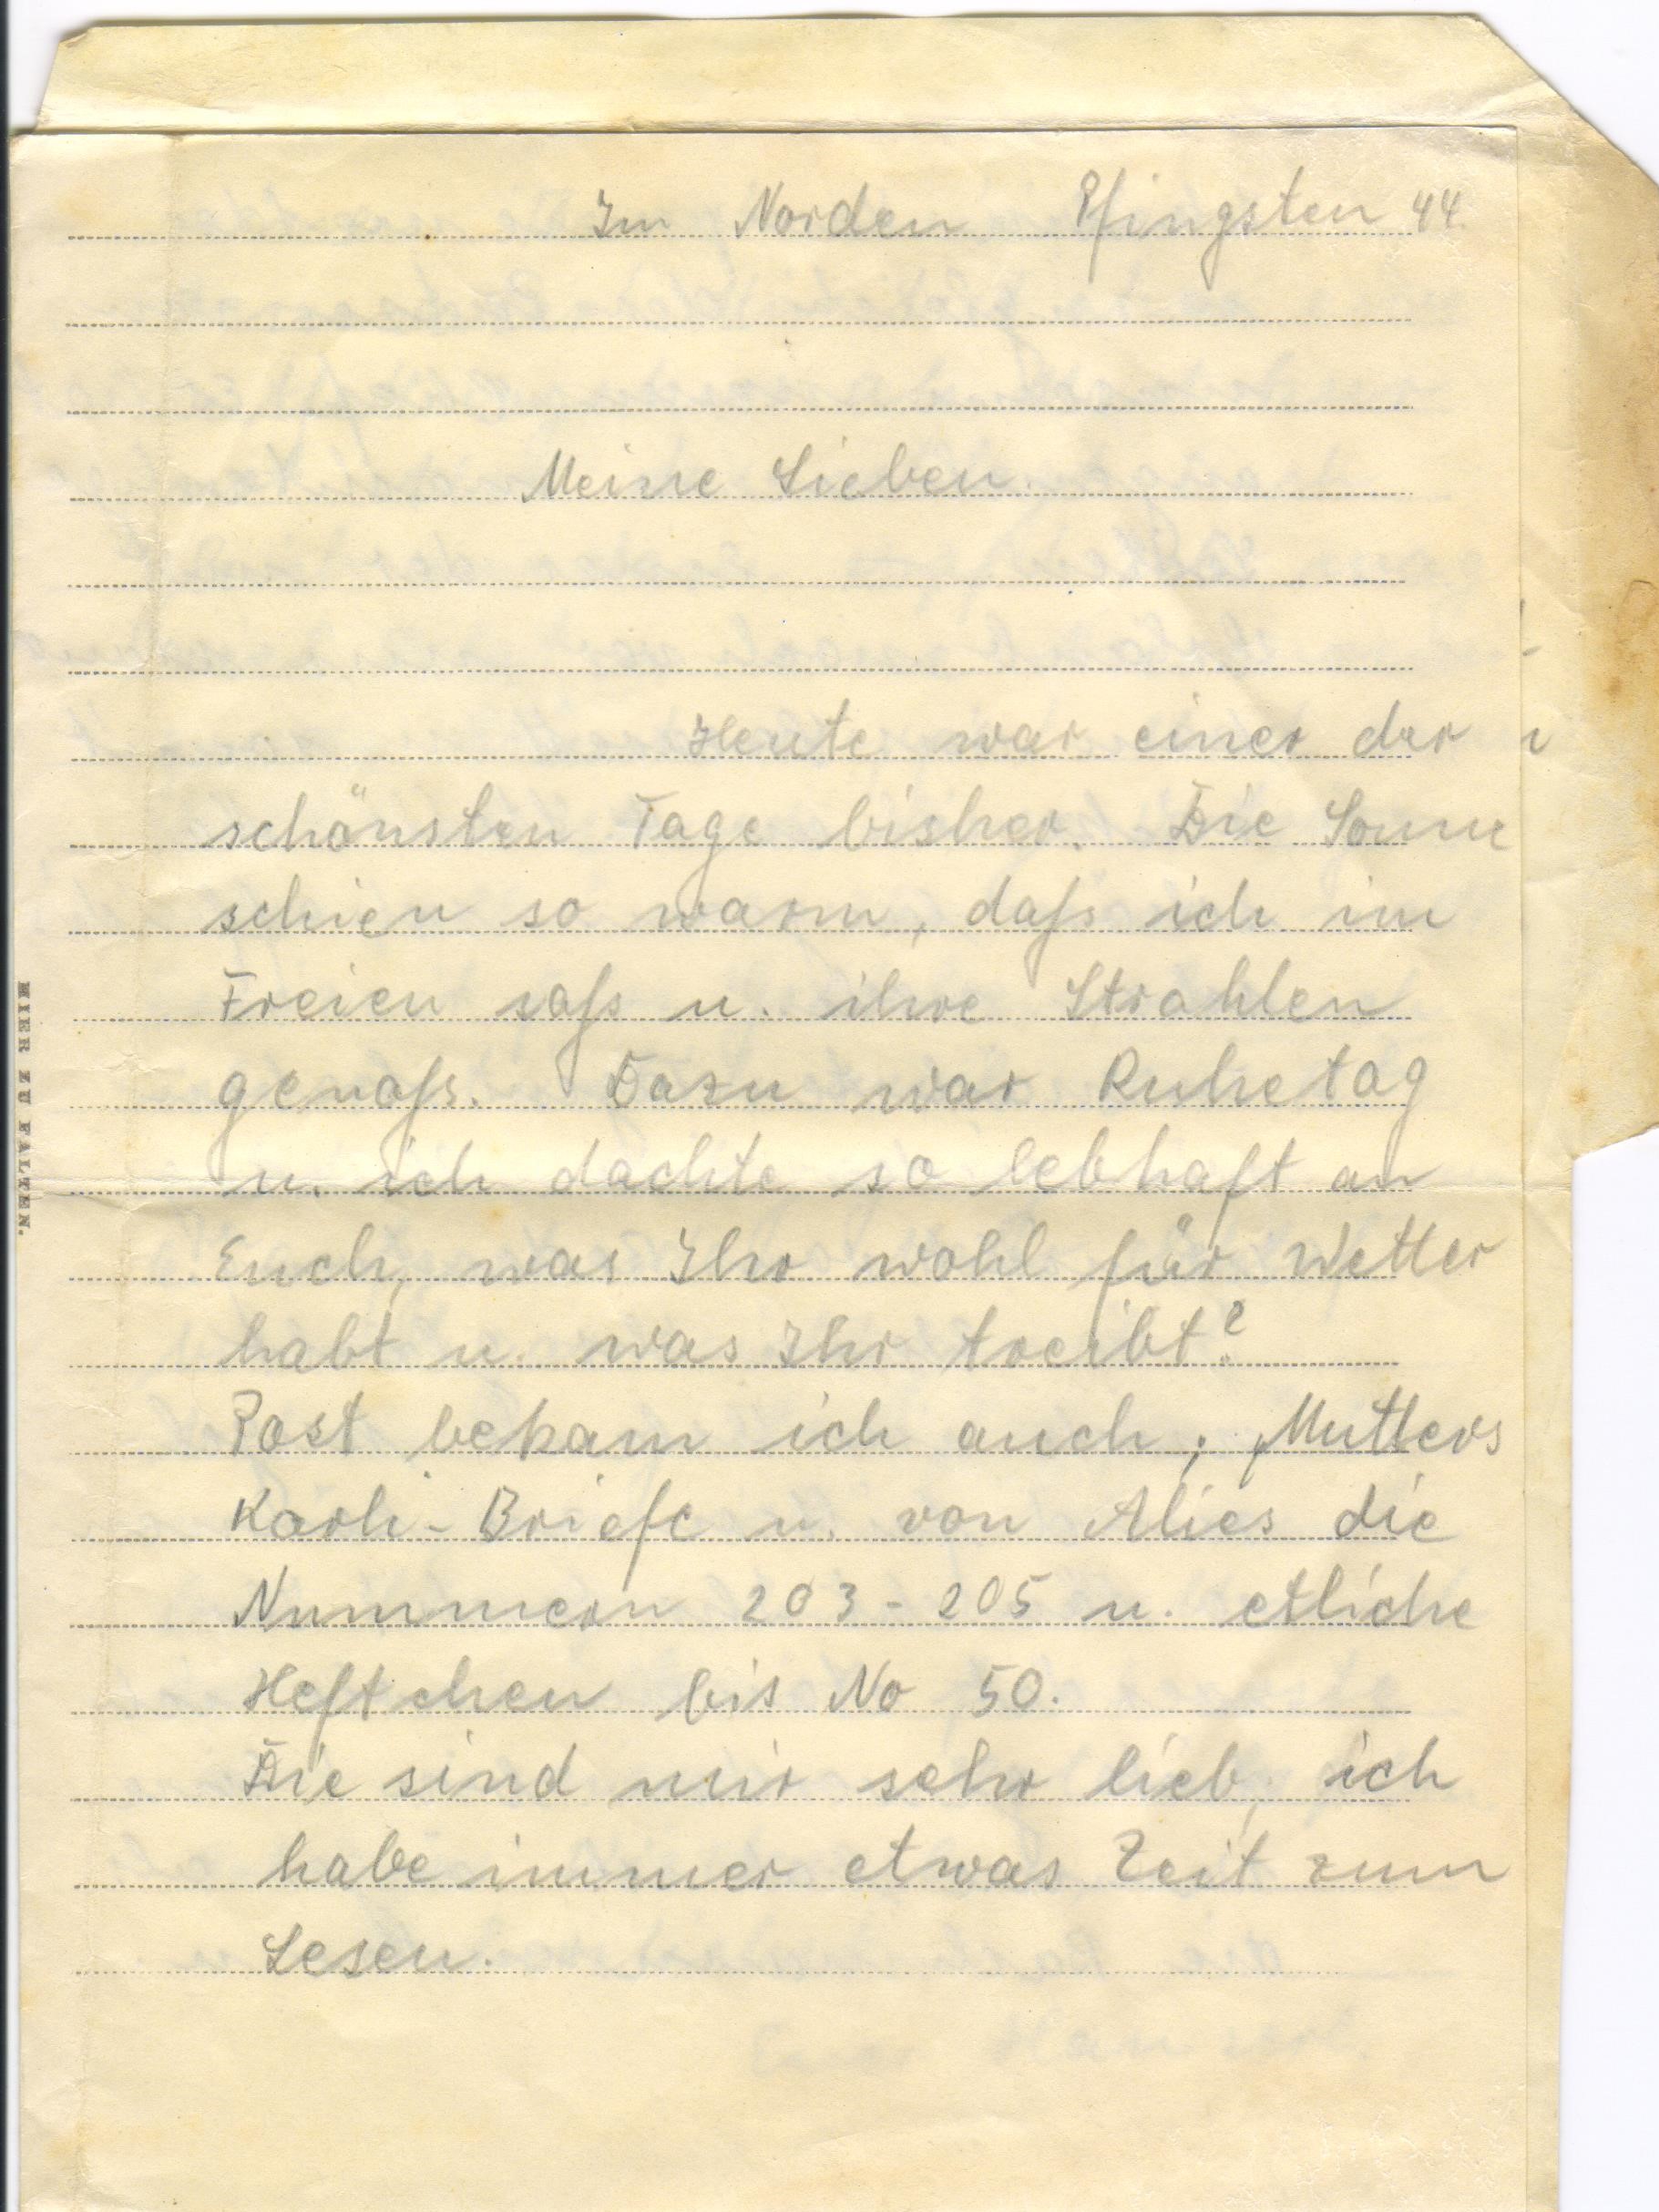 Im Norden Pfingsten 44.
Meine Lieben.
Heute war einer der
schönsten Tage bisher. Die Sonne
schien so warm, daß ich im
Freien saß u. ihre Strahlen
genoß. Dazu war Ruhetag
u. ich dachte so lebhaft an
Euch, was Ihr wohl für Wetter
habt u. was Ihr treibt?
Post bekam ich auch; Mutters
Karli-Briefe u. von Alies die
Nummern 203-205 u. etliche
Heftchen bis No 50.
Die sind mir sehr lieb, ich
habe immer etwas Zeit zum
Lesen.
HIER ZU FALTEN.